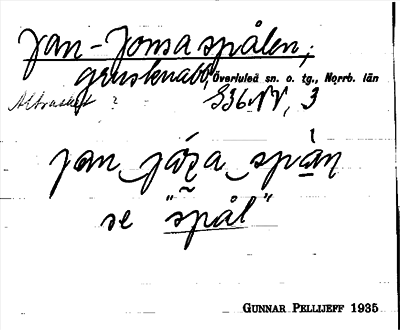 Jan-Jonsaspålen;
grusknabb, Överluleå sn. o. tg., Norrb. län
Altrasket ? S36NV, 3
jan józa spàn
se "spål"
GUNNAR PELLIJEFF 1935